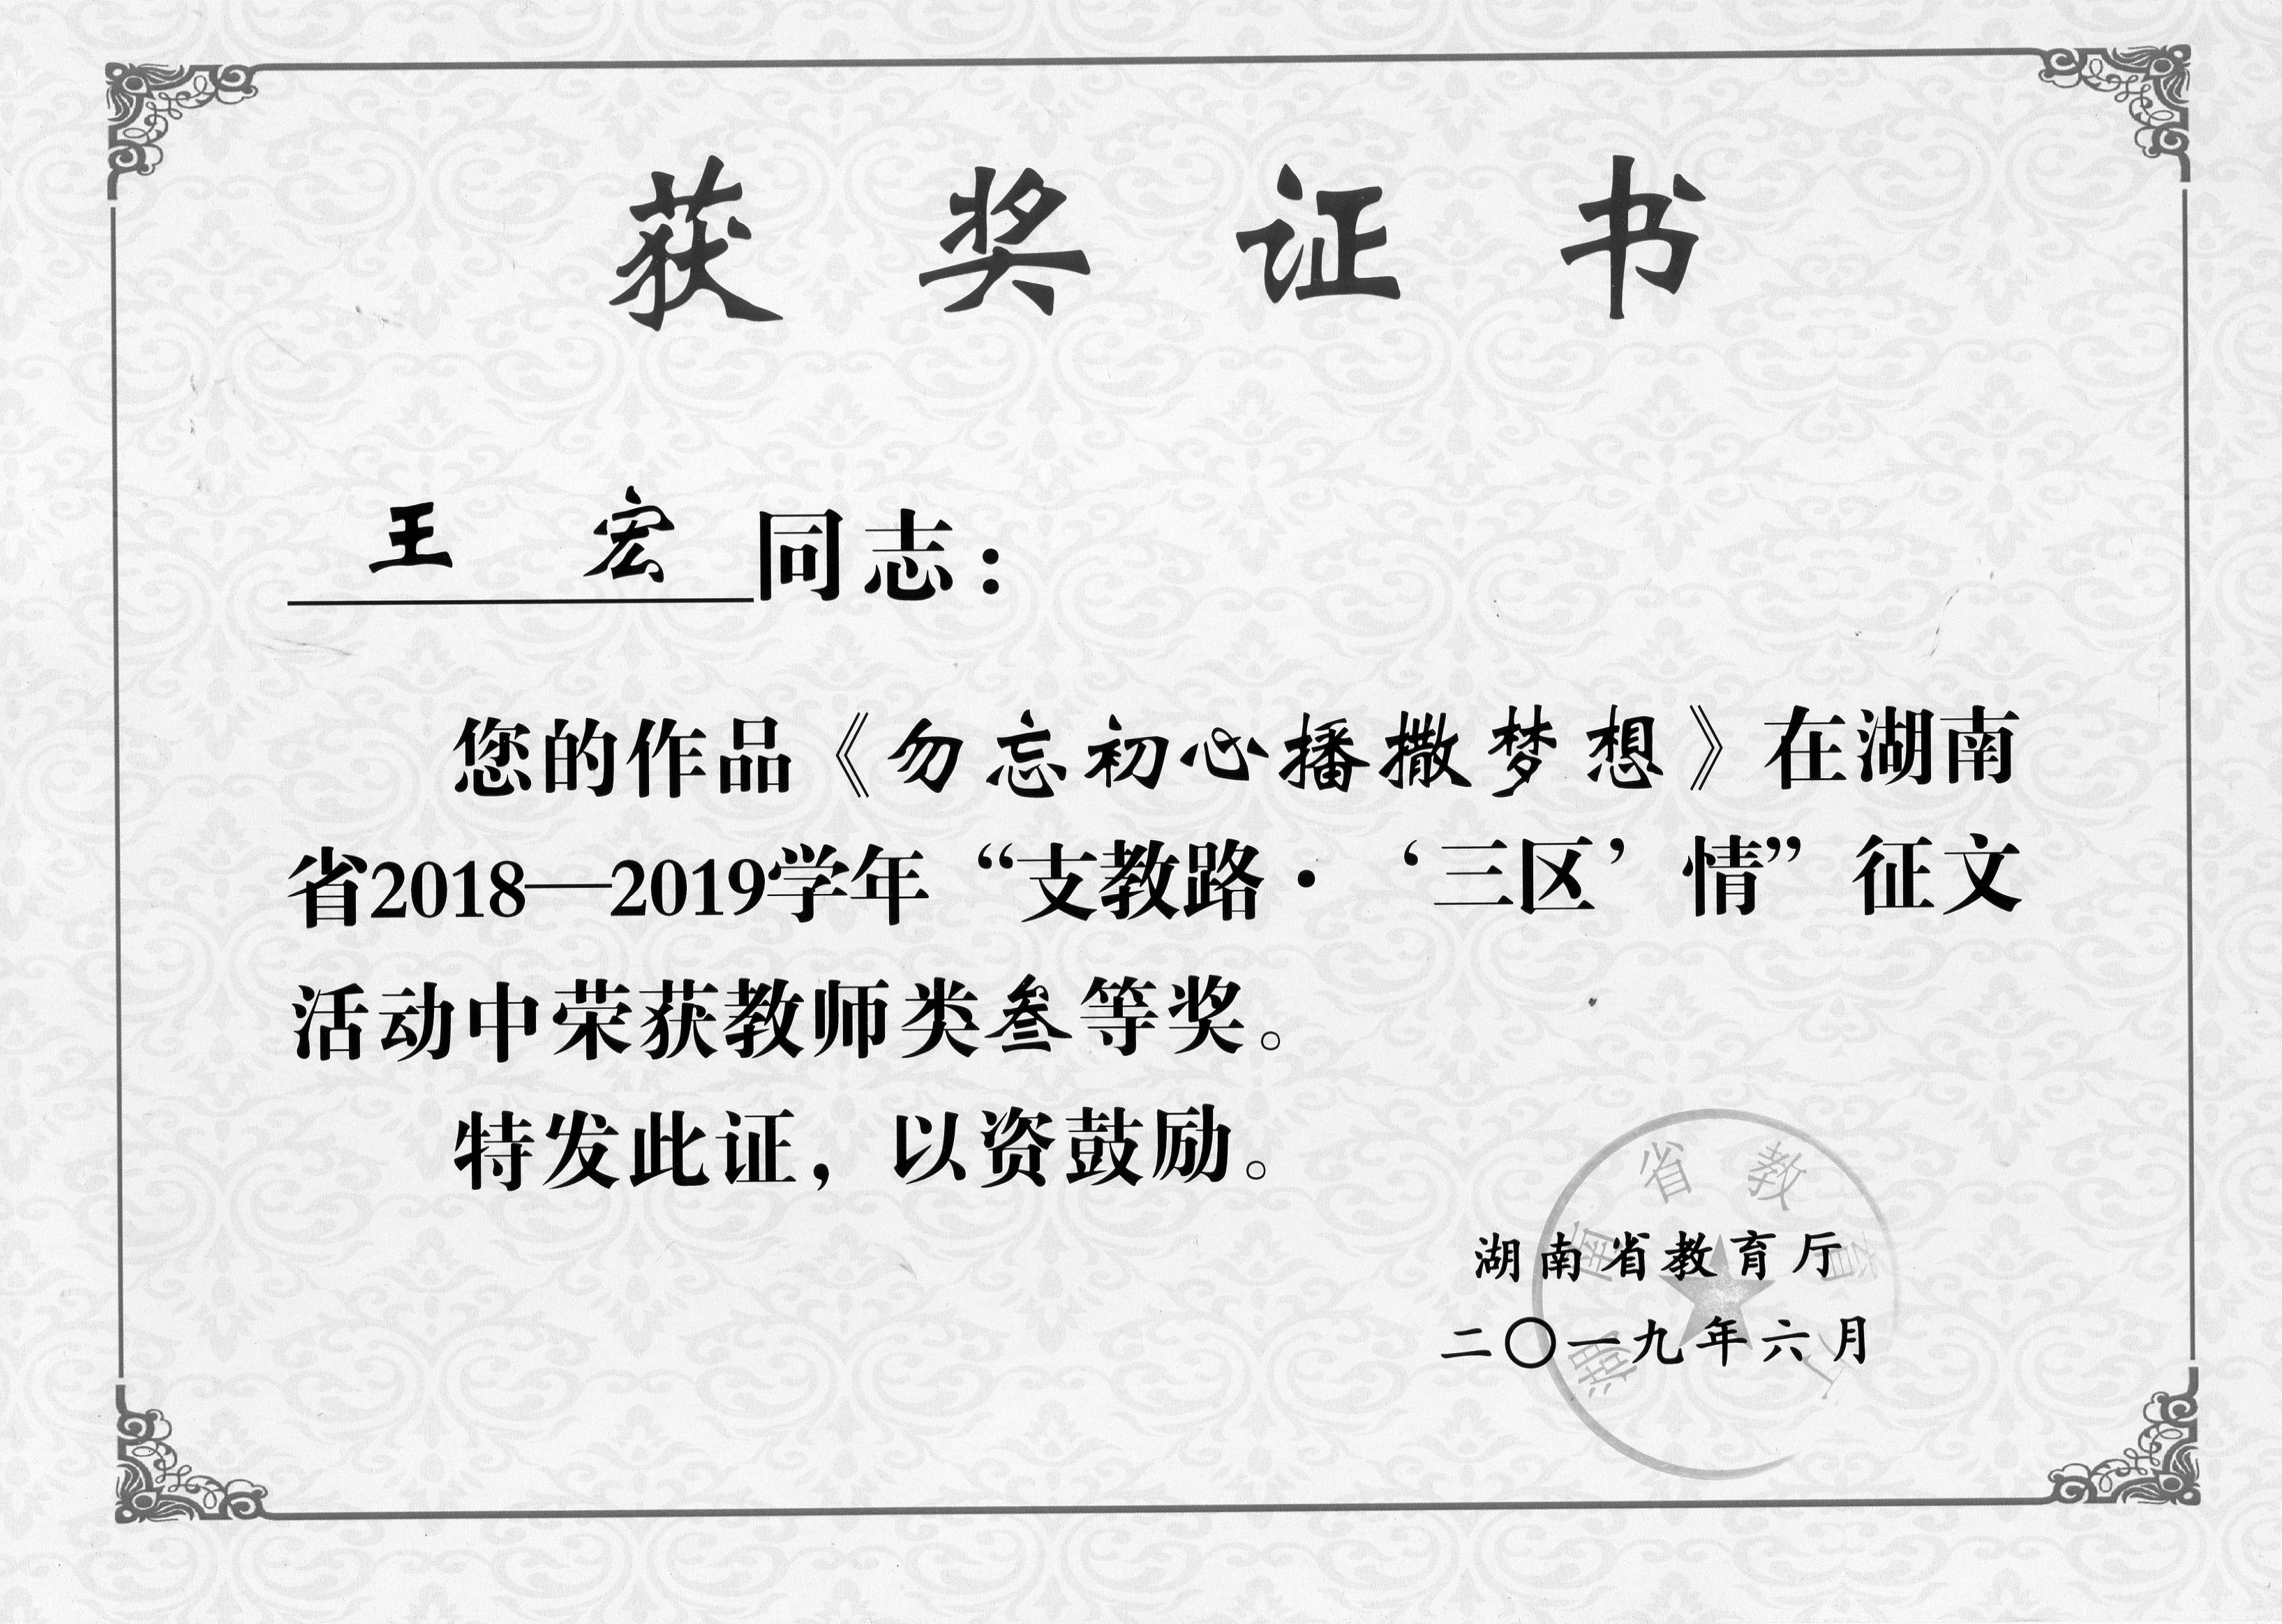 获奖证书
王 宏 同志：
您的作品《勿忘初心播撒梦想》在湖南
省2018—2019学年“支教路·‘三区’情”征文
活动中荣获教师类叁等奖。
特发此证，以资鼓励。
湖南省教育厅
湖南省教育厅
二〇一九年六月